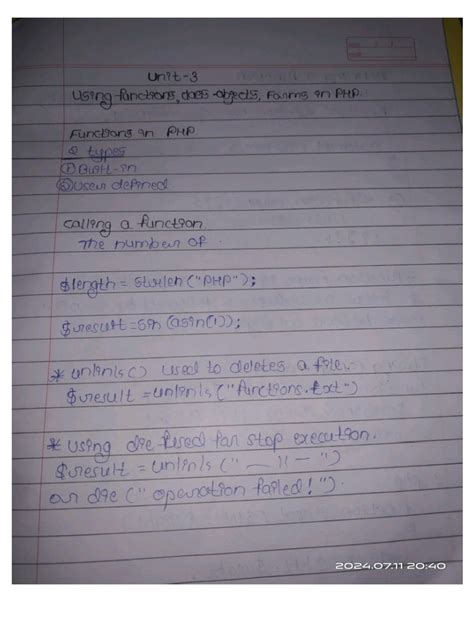 Unit-3
Using functions, class-objects, Forms in PHP.
Functions in PHP
2 types
① Built-in
② User defined
calling a function
The number of
$length = strlen ("PHP");
$result = sin (asin(1));
* unlink() used to deletes a file.
$result = unlink ("functions.txt")
* using die used for stop execution.
$result = unlink ("
or die (" operation failed! ").
2024.07.11 20:40